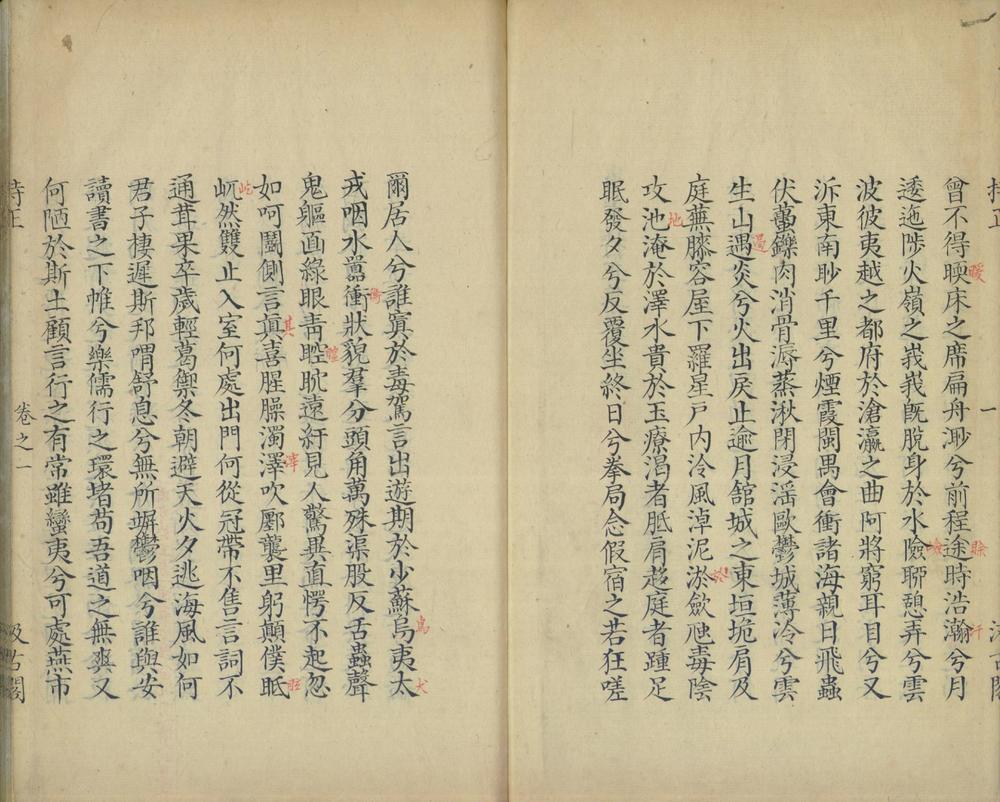 曾不得暎床之席扁舟渺兮前程途時浩瀚兮月
逶迤陟火嶺之峩峩既脫身於水險聊憩弄兮雲
波彼夷越之都府於滄瀛之曲阿將窮耳目兮又
泝東南眇千里兮煙霞閩禺會衝諸海親日飛蟲
伏蠆鑠肉消骨溽蒸湫閉浸滛歐鬱城薄冷兮雲
生山遇炎兮火出戾止逾月舘城之東垣垝肩及
庭蕪膝容屋下羅星戸内泠風淖泥淤歛虺毒陰
攻池淹於澤水貴於玉療渴者胝肩趍庭者踵足
眠發夕兮反覆坐終日兮拳局念假宿之若狂嗟
爾居人兮誰寘於毒駕言出遊期於少蘇烏夷太
戎咽水嚣衝狀貌羣分頭角萬殊渠股反舌蟲聲
鬼軀面綠眼靑䀴眈遠紆見人驚異直愕不起忽
如呵鬬側言眞喜腥臊濁澤吹𨞬襲里躬顛僕眡
㟁然雙止入室何處出門何從冠帶不售言詞不
通茸果卒歲輕葛禦冬朝避天火夕逃海風如何
君子棲遲斯邦喟舒息兮無所塀鬱咽兮誰與安
讀書之下帷兮樂儒行之環堵苟吾道之無爽又
何陋於斯土顧言行之有常雖蠻夷兮可處燕市
卷之一
一
暖
賒
汗
險
過
地
於
萬
犬
衝
瞠
其
滓
旺
屹